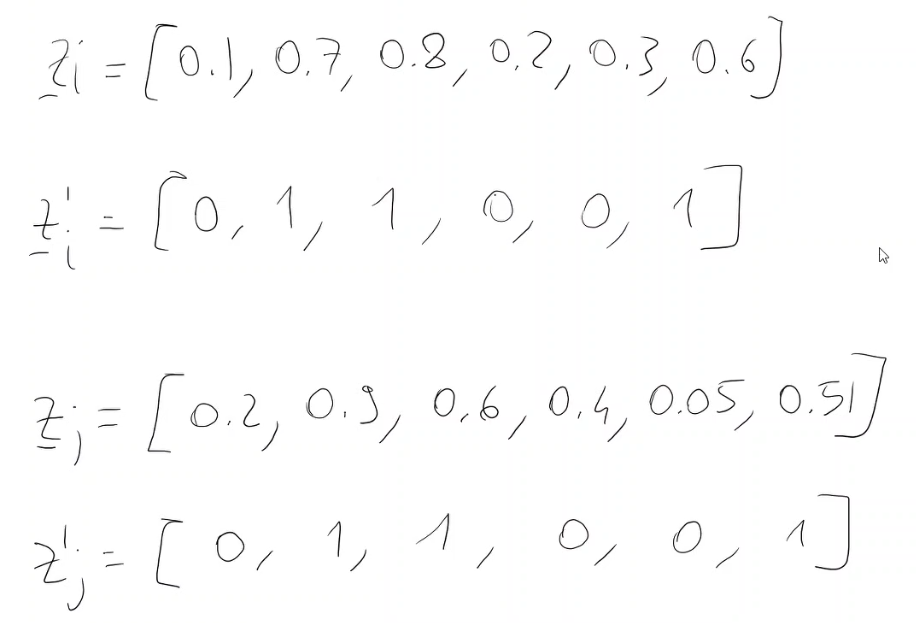 z̲i = [0.1, 0.7, 0.8, 0.2, 0.3, 0.6]
z̲'i = [0, 1, 1, 0, 0, 1]
z̲j = [0.2, 0.9, 0.6, 0.4, 0.05, 0.51]
z'j = [0, 1, 1, 0, 0, 1]